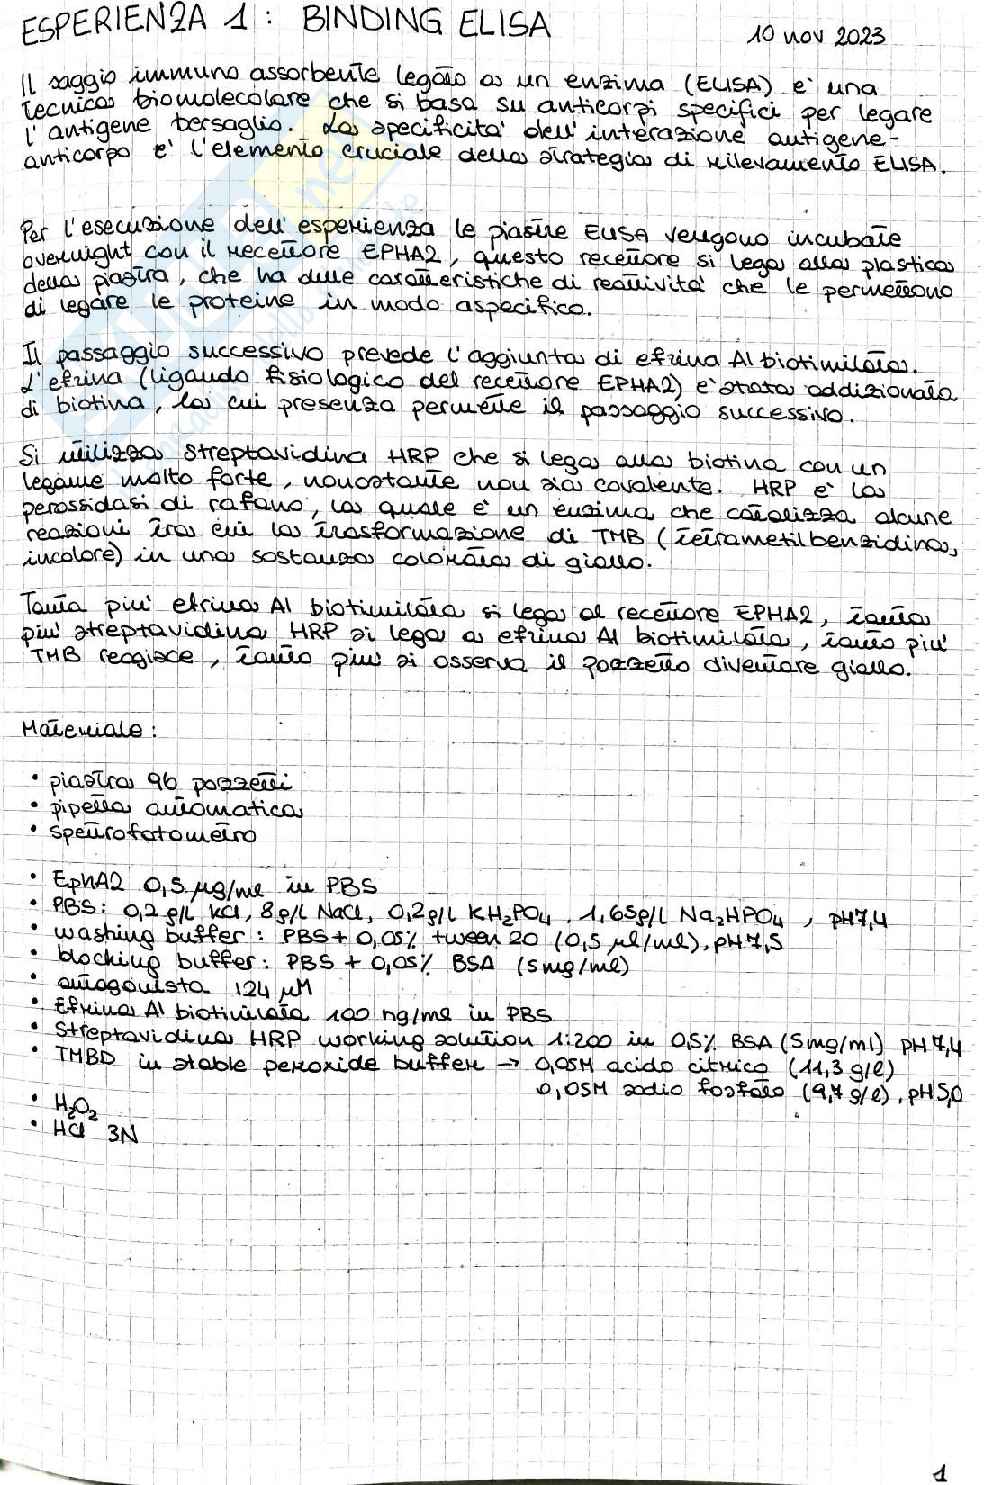 ESPERIENZA 1: BINDING ELISA
10 nov 2023
Il saggio immuno assorbente legato a un enzima (ELISA) e' una
tecnica biomolecolare che si basa su anticorpi specifici per legare
l'antigene bersaglio. La specificita' dell'interazione antigene-
anticorpo e' l'elemento cruciale della strategia di rilevamento ELISA.
Per l'esecuzione dell'esperienza le piastre ELISA vengono incubate
overnight con il recettore EPHA2, questo recettore si lega alla plastica
della piastra, che ha delle caratteristiche di reattivita' che le permettono
di legare le proteine in modo aspecifico.
Il passaggio successivo prevede l'aggiunta di efrina A1 biotinilata.
L'efrina (ligando fisiologico del recettore EPHA2) e' stata addizionata
di biotina, la cui presenza permette il passaggio successivo.
Si utilizza Streptavidina HRP che si lega alla biotina con un
legame molto forte, nonostante non sia covalente. HRP e' la
perossidasi di rafano, la quale e' un enzima che catalizza alcune
reazioni tra cui la trasformazione di TMB (tetrametilbenzidina,
incolore) in una sostanza colorata di giallo.
Tanta piu' efrina A1 biotinilata si lega al recettore EPHA2, tanta
piu' streptavidina HRP si lega a efrina A1 biotinilata, tanto piu'
TMB reagisce, tanto piu' si osserva il pozzetto diventare giallo.
Materiale:
• piastra 96 pozzetti
• pipetta automatica
• spettrofotometro
• EphA2 0,5 µg/ml in PBS
• PBS: 0,2 g/L KCl, 8 g/L NaCl, 0,2 g/L KH₂PO₄, 1,65 g/L Na₂HPO₄, pH 7,4
• washing buffer: PBS + 0,05% tween 20 (0,5 µl/ml), pH 7,5
• blocking buffer: PBS + 0,05% BSA (5 mg/ml)
• antagonista 124 µM
• Efrina A1 biotinilata 100 ng/ml in PBS
• Streptavidina HRP working solution 1:200 in 0,5% BSA (5 mg/ml) pH 7,4
• TMBD in stable peroxide buffer → 0,05M acido citrico (11,3 g/l)
0,05M sodio fosfato (9,7 g/l), pH 5,0
• H₂O₂
• HCl 3N
1